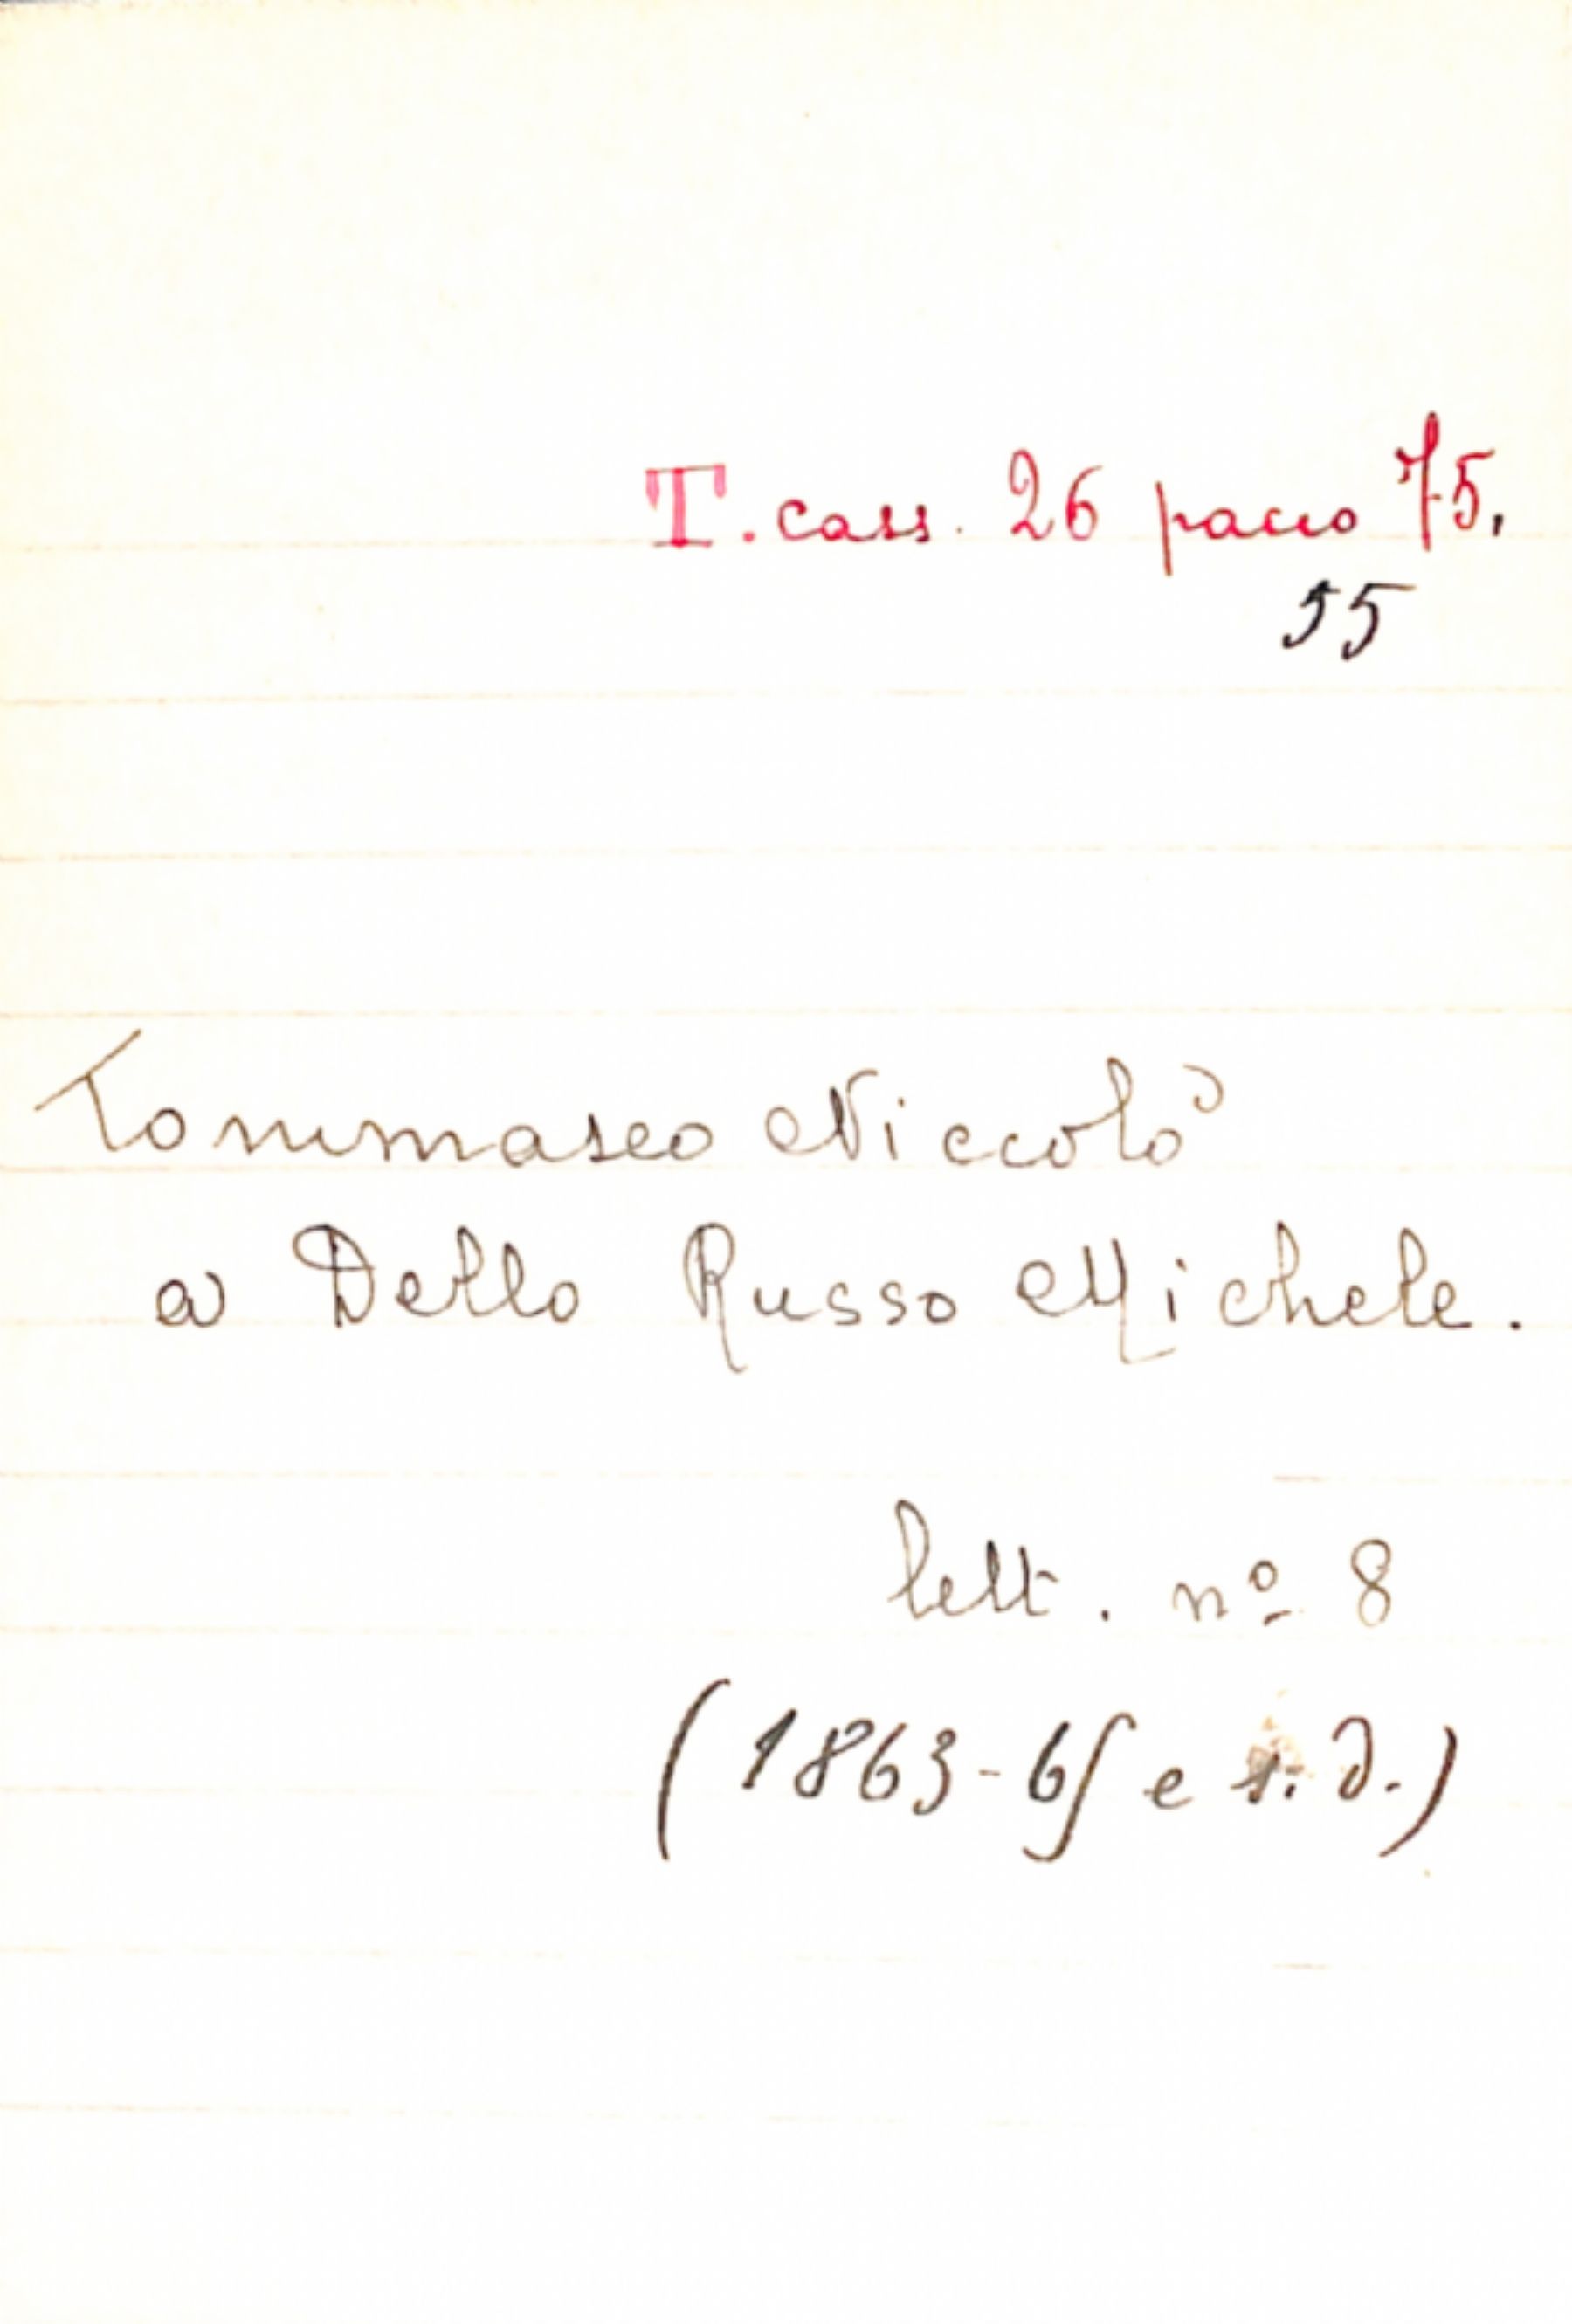 T. cass. 26 pacco 75,
55
Tommaseo Niccolò
a Dello Russo Michele.
lett. nº 8
(1863-65 e s. d.)